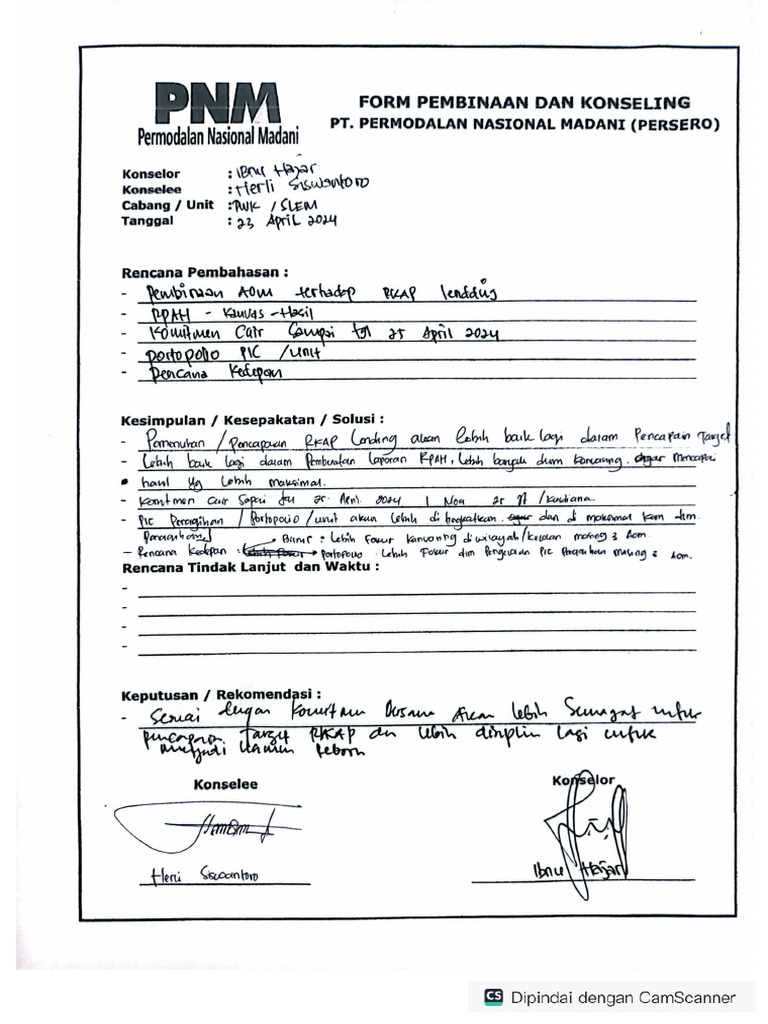 PNM
Permodalan Nasional Madani
FORM PEMBINAAN DAN KONSELING
PT. PERMODALAN NASIONAL MADANI (PERSERO)
Konselor : Ibnu Hajar
Konselee : Herli Siswantoro
Cabang / Unit : PWK / SLEM
Tanggal : 23 April 2024
Rencana Pembahasan :
- Pembinaan AOM terhadap RKAP lending
- RPAH - Kanvas - Hasil
- Komitmen Cair Sampai tgl 25 April 2024
- portopolio PIC / unit
- Rencana Kedepan
Kesimpulan / Kesepakatan / Solusi :
- Pemenuhan / Pencapaian RKAP Lending akan lebih baik lagi dalam Pencapain Target
- Lebih baik lagi dalam Pembuatan laporan RPAH, Lebih banyak dlm mencapai
hasil yg lebih maksimal.
- Komitmen Cair 25 April 2024 1 Noa 25
- PIC Penagihan / Portopolio / unit akan lebih di tingkatkan dan di maksimal kan dlm
Penagihan
Lebih Fokus di wilayah / masing2 Aom.
- Rencana Kedepan : Portopolio : Lebih Fokus dlm PIC Penagihan masing2 Aom.
Rencana Tindak Lanjut dan Waktu :
-
-
-
-
Keputusan / Rekomendasi :
- Sesuai dengan Komitmen Bersama Akan lebih Semagat untuk
pencapaian Target RKAP dn lebih disiplin lagi untuk
menjadi Reborn
Konselee
Konselor
Herli Siswantoro
Ibnu Hajar
CS Dipindai dengan CamScanner